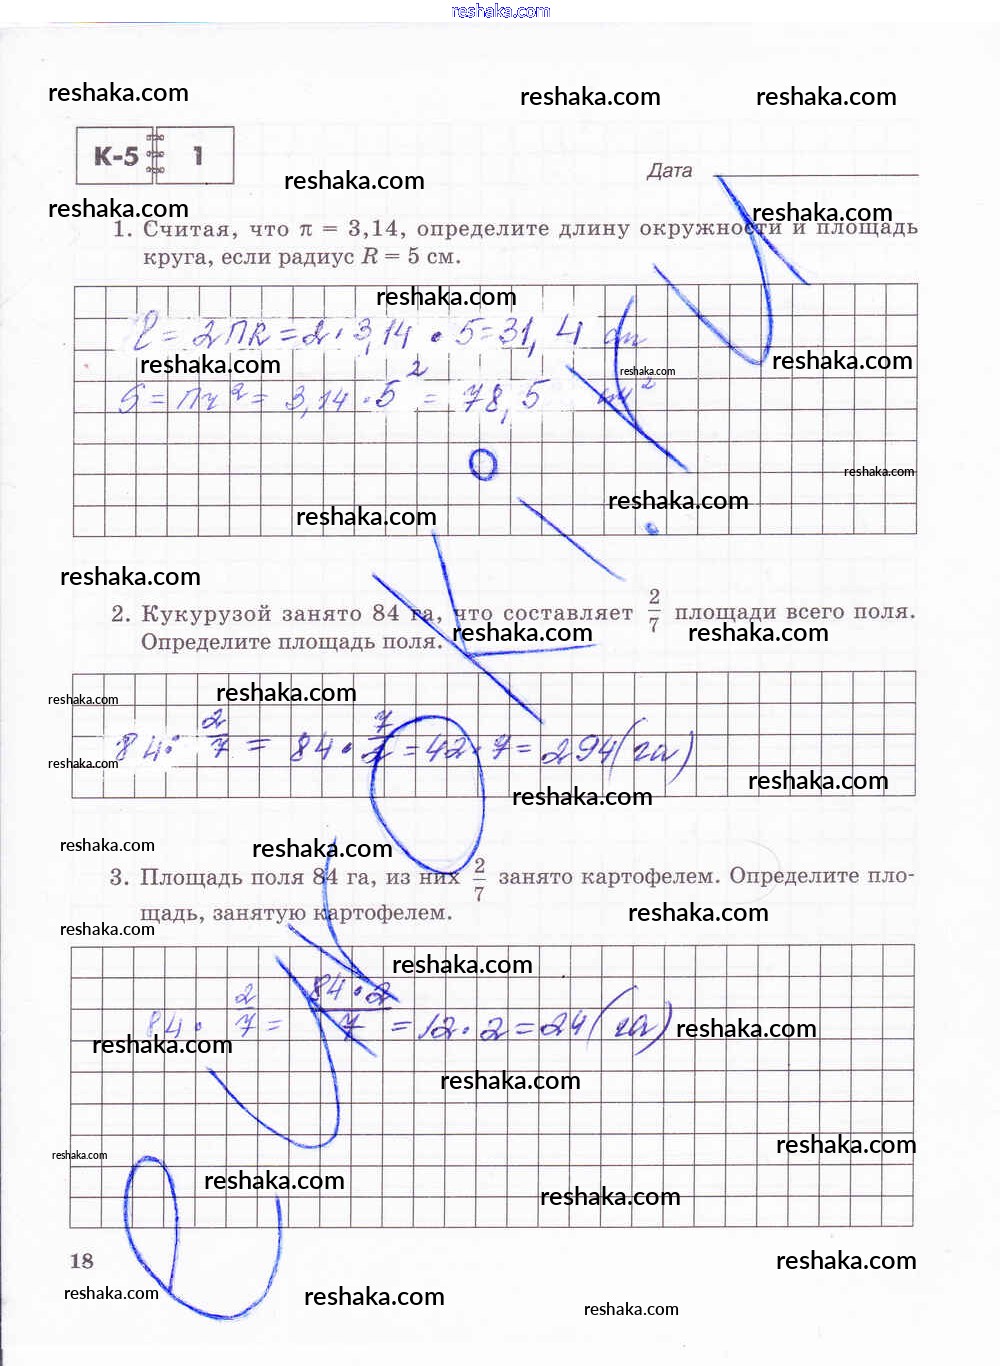 reshaka.com
reshaka.com
reshaka.com reshaka.com
К-5 1
Дата
reshaka.com
reshaka.com reshaka.com
1. Считая, что π = 3,14, определите длину окружности и площадь
круга, если радиус R = 5 см.
reshaka.com
ℓ = 2ПR = 2·3,14·5=31,4 см
reshaka.com reshaka.com reshaka.com
S = Пr² = 3,14·5² = 78,5 см²
reshaka.com
reshaka.com
reshaka.com
reshaka.com
2. Кукурузой занято 84 га, что составляет 2/7 площади всего поля.
Определите площадь поля.
reshaka.com reshaka.com
reshaka.com reshaka.com
84 : 2/7 = 84 · 7/2 = 42 · 7 = 294 (га)
reshaka.com
reshaka.com reshaka.com
reshaka.com reshaka.com
3. Площадь поля 84 га, из них 2/7 занято картофелем. Определите пло-
щадь, занятую картофелем.
reshaka.com
reshaka.com
reshaka.com
84 · 2/7 = 84·2/7 = 12 · 2 = 24 (га)
reshaka.com reshaka.com
reshaka.com
reshaka.com
reshaka.com
reshaka.com reshaka.com
18
reshaka.com
reshaka.com reshaka.com reshaka.com